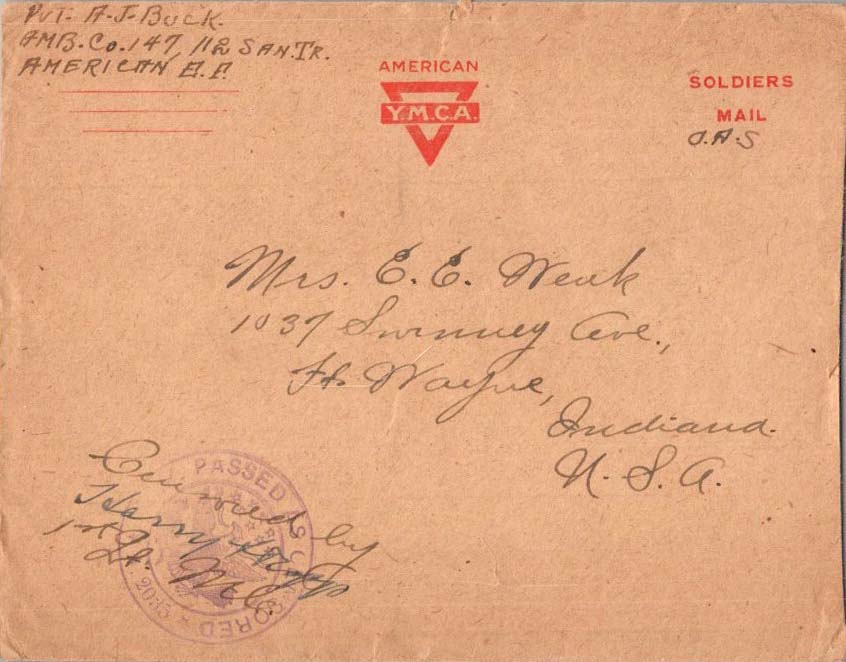 Pvt. A. J. Buck.
AMB. Co. 147, 112 SAN. TR.
AMERICAN E. F.
AMERICAN
Y.M.C.A.
SOLDIERS
MAIL
O.A.S
Mrs. E. E. Weuk
1037 Swinney Ave.,
Ft. Wayne,
Indiana.
U. S. A.
Censored by
Harry
1st Lt. M.C.
PASSED AS CENSORED
2035